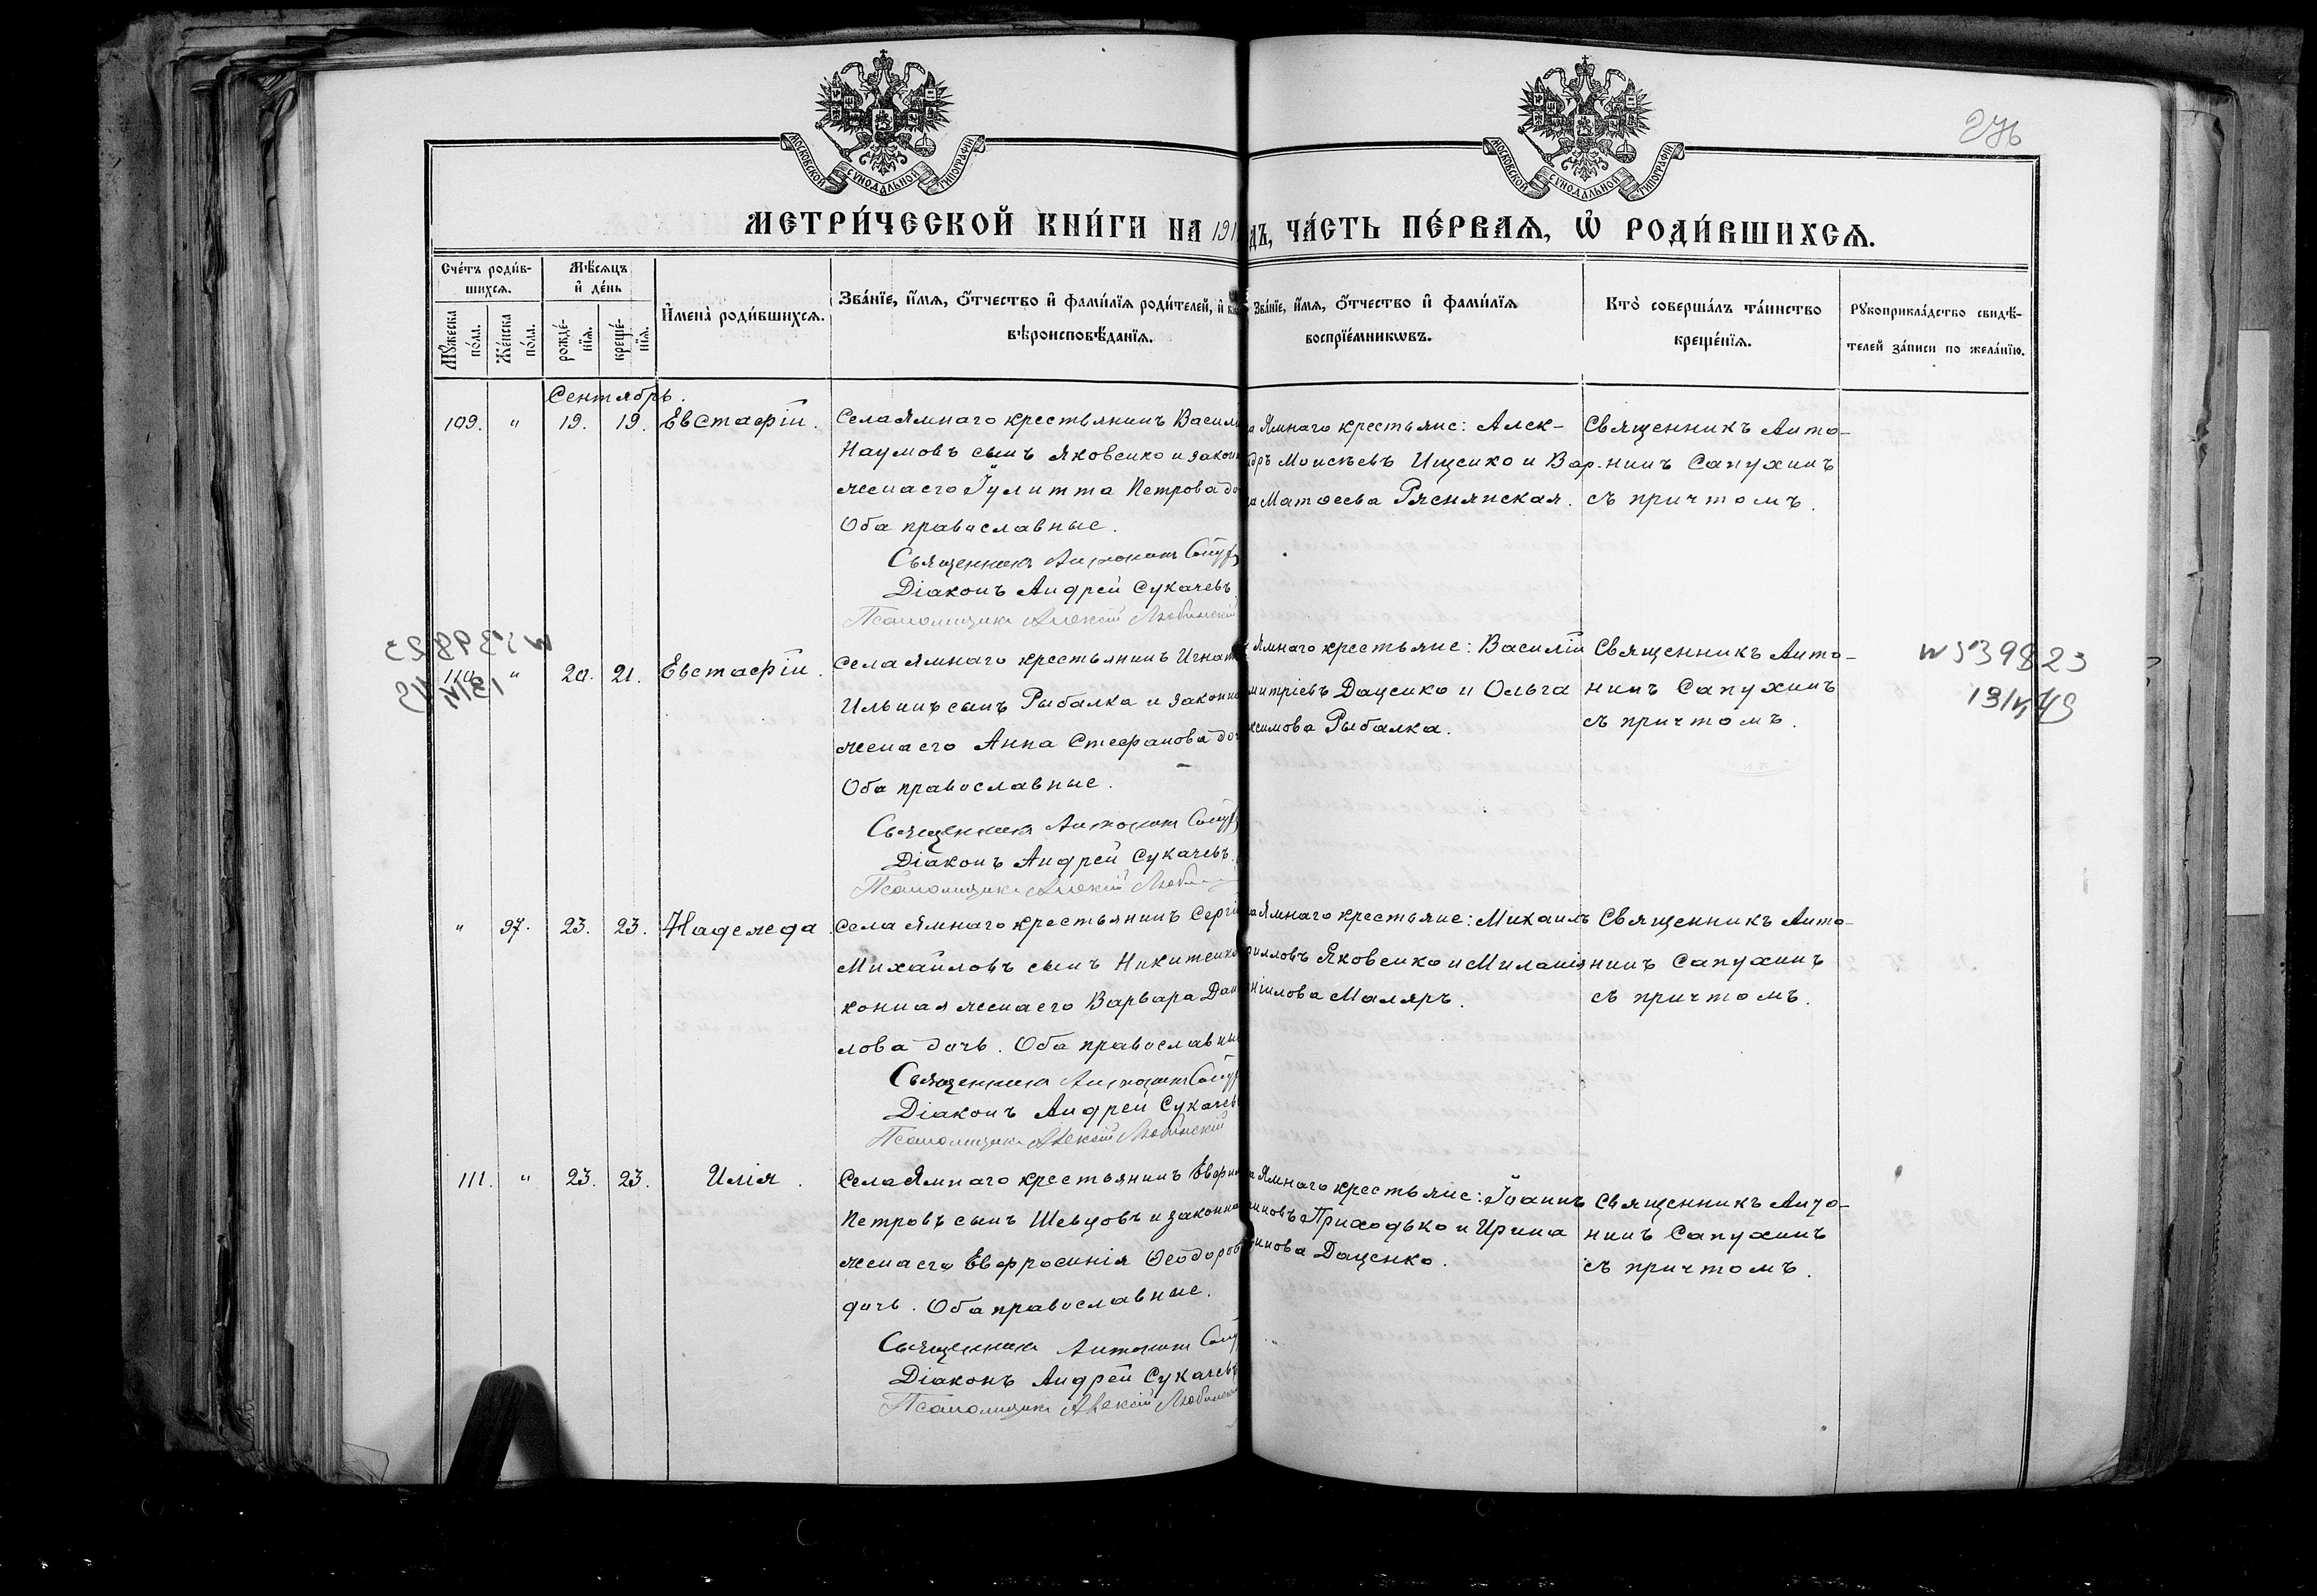 276
МОСКОВСКОЙ СѴНОДАЛЬНОЙ ТИПОГРАФІИ
МОСКОВСКОЙ СѴНОДАЛЬНОЙ ТИПОГРАФІИ
МЕТРИ́ЧЕСКОЙ КНИ́ГИ НА 191 ДЪ, ЧА́СТЬ ПЕ́РВАЯ, Ѽ РОДИ́ВШИХСЯ.
Сче́тъ роди́в-
шихся.
Мѣ́сяцъ
и҆ де́нь
Мꙋ́жеска
по́ла.
Же́нска
по́ла.
рожде́-
нїя.
креще́-
нїя.
И҆мена̀ роди́вшихся.
Зва́нїе, и҆́мя, ѻ҆́тчество и҆ фами́лїя роди́телей, и҆
вѣроисповѣ́данїя.
Зва́нїе, и҆́мя, ѻ҆́тчество и҆ фами́лїя
воспрїе́мникѡвъ.
Кто̀ соверша́лъ та́инство
креще́нїя.
Рꙋкоприкла́дство свидѣ́-
телей за́писи по жела́нїю.
Сентябрь.
109. " 19. 19. Евстафій.
Села Ямнаго крестьянинъ Васил
Наумовъ сынъ Яковенко и закон
жена его Іулитта Петрова до
Оба православные.
Священникъ Антонинъ Сапух
Діаконъ Андрей Сукачевъ
Псаломщикъ Алексій Любинскій
Ямнаго крестьяне: Алек-
дръ Моисѣевъ Ищенко и Вар-
а Матѳеева Ряснянская.
Священникъ Анто-
нинъ Сапухинъ
съ причтомъ.
110. " 20. 21. Евстафій.
Села Ямнаго крестьянинъ Игнат
Ильинъ сынъ Рыбалка и законн
жена его Анна Стефанова доч
Оба православные.
Священникъ Антонинъ Сапух
Діаконъ Андрей Сукачевъ.
Псаломщикъ Алексій Люби
Ямнаго крестьяне: Василій
митріевъ Даценко и Ольга
ксимова Рыбалка.
Священникъ Анто-
нинъ Сапухинъ
съ причтомъ.
w 539823
" 97. 23. 23. Надежда.
Села Ямнаго крестьянинъ Сергі
Михайловъ сынъ Никитенко
конная жена его Варвара Дан
лова дочь. Оба православны
Священникъ Антонинъ Сапух
Діаконъ Андрей Сукачев
Псаломщикъ Алексій Любинскій
а Ямнаго крестьяне: Михаилъ
рилловъ Яковенко и Миланія
ніилова Маляръ.
Священникъ Анто-
нинъ Сапухинъ
съ причтомъ.
111. " 23. 23. Илія.
Села Ямнаго крестьянинъ Евфи
Петровъ сынъ Шевцовъ и законна
жена его Евфросинія Ѳеодоров
дочь. Оба православные.
Священникъ Антонинъ Сапу
Діаконъ Андрей Сукачевъ
Псаломщикъ Алексій Любинскі
а Ямнаго крестьяне: Іоаннъ
новъ Приходько и Ирина
инова Даценко.
Священникъ Анто-
нинъ Сапухинъ
съ причтомъ.